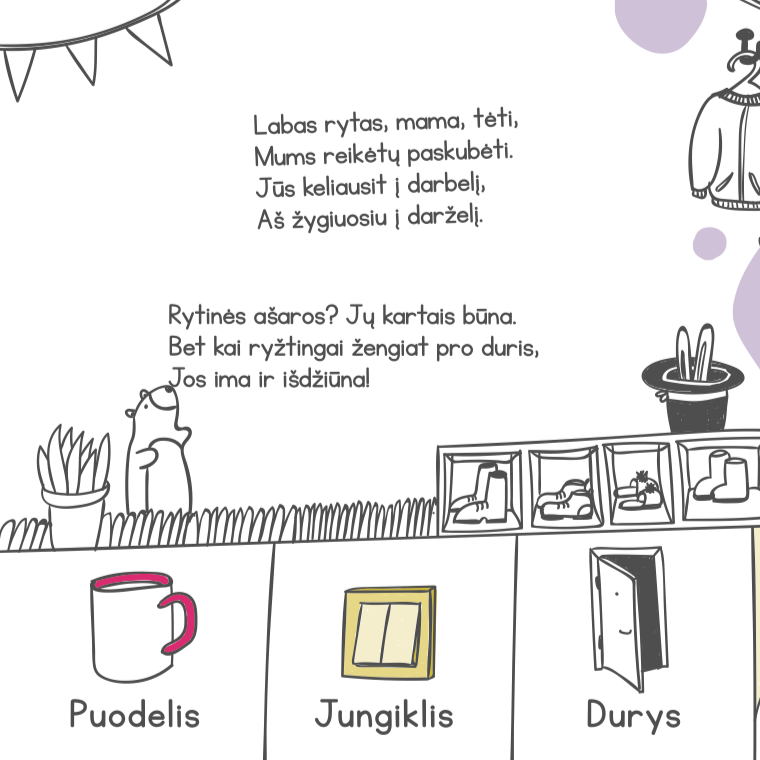 Labas rytas, mama, tėti,
Mums reikėtų paskubėti.
Jūs keliausit į darbelį,
Aš žygiuosiu į darželį.
Rytinės ašaros? Jų kartais būna.
Bet kai ryžtingai žengiat pro duris,
Jos ima ir išdžiūna!
Puodelis
Jungiklis
Durys